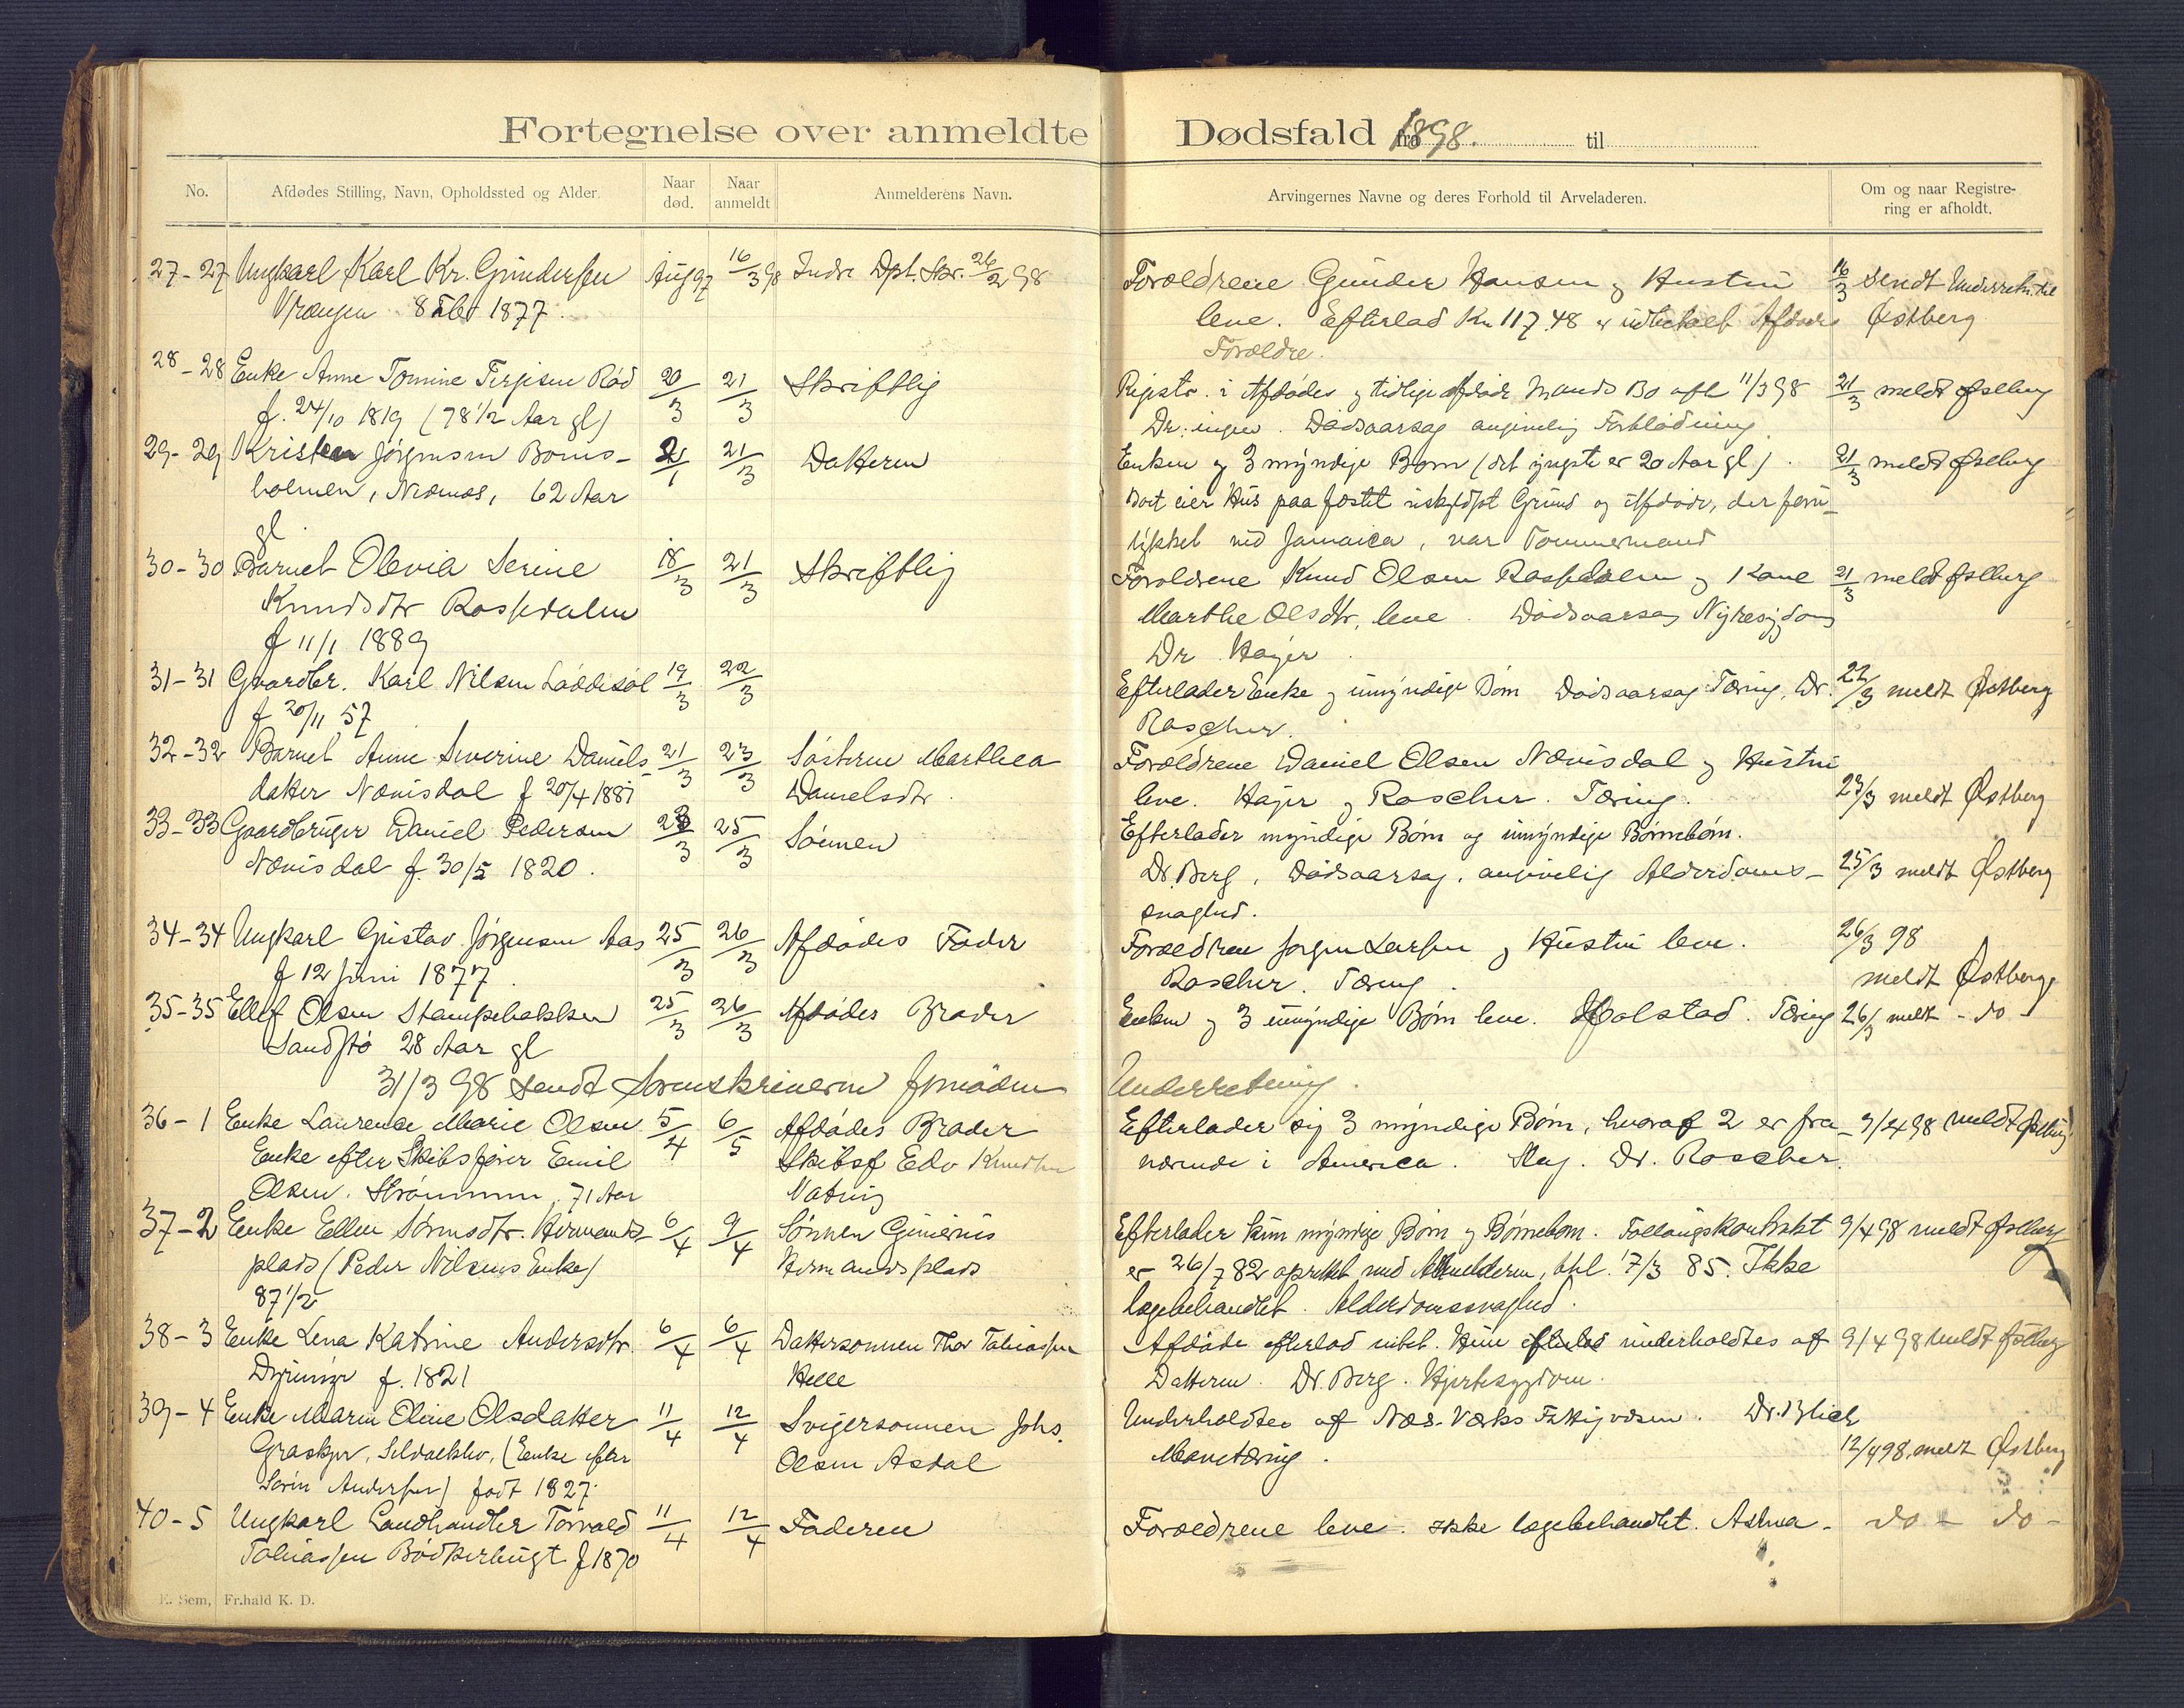 Fortegnelse over anmeldte Dødsfald fra 1898. til
No.
Afdødes Stilling, Navn, Opholdssted og Alder.
Naar død.
Naar anmeldt
Anmelderens Navn.
Arvingernes Navne og deres Forhold til Arveladeren.
Om og naar Registrering er afholdt.
27-27 Ungkarl Karl Kr. Gundersen Aug 97 16/3 98 Indre Dpt. Skr. 26/2 98 Forældrene Gunder Hansen og Hustru 16/3 sendt Underretn. til
8 Febr 1877. leve. Efterlad Kr. 117.48 er udbetalt Afdødes Østberg
Forældre.
28-28 Enke Anne Tomine Terjesen Rød 20/3 21/3 Skriftlig Registr. i Afdødes og tidligere afdøde Mands Bo afh 11/3 98 21/3 meldt Østberg
f. 24/10 1819 (78 1/2 Aar gl) Dr: ingen. Dødsaarsag angivelig Forblødning.
29-29 Kristen Jørgensen Boms- 2/1 21/3 Datteren Enken og 3 myndige Børn (det yngste er 20 Aar gl). 21/3 meldt Østberg
holmen, Næsnæs, 62 Aar Boet eier Hus paa fæstet uskyldsat Grund og Afdøde, der foru-
gl lykket ved Jamaica, var Tømmermand
30-30 Barnet Olevia Serine 18/3 21/3 Skriftlig Forældrene Knud Olsen Rospedalen og Kone 21/3 meldt Østberg
Knudsdtr Rospedalen Marthe Olsdtr, leve. Dødsaarsag Nyresygdom
f 11/1 1889 Dr Høyer.
31-31 Gaardbr. Karl Nilsen Løddesøl 19/3 22/3 Efterlader Enke og umyndige Børn Dødsaarsag Tæring, Dr. 22/3 meldt Østberg
f 20/11 57 Roscher.
32-32 Barnet Anne Severine Daniels- 21/3 23/3 Søsteren Marthea Forældrene Daniel Olsen Nævisdal og Hustru
datter Nævisdal f 20/4 1881 Danielsdtr. leve. Høyer og Roscher. Tæring. 23/3 meldt Østberg
33-33 Gaardbruger Daniel Pedersen 23/3 25/3 Sønnen Efterlader myndige Børn og umyndige Børnebørn.
Nævisdal f. 30/5 1820. Dr. Berg, Dødsaarsag, angivelig Alderdoms- 25/3 meldt Østberg
svaghed.
34-34 Ungkarl Gustav Jørgensen Aas 25/3 26/3 Afdødes Fader Forældrene Jørgen Larsen og Hustru leve. 26/3 98
f 12 Juni 1877. Roscher. Tæring. meldt Østberg
35-35 Ellef Olsen Stampebakken 25/3 26/3 Afdødes Broder Enken og 3 umyndige Børn leve. Holstad. Tæring 26/3 meldt - do -
Sandstø 28 Aar gl
31/3 98 sendt Sorenskriveren fornøden Underretning.
36-1 Enke Laurense Marie Olsen 5/4 6/5 Afdødes Broder Efterlader sig 3 myndige Børn, hvoraf 2 er fra- 9/4 98 meldt Østberg
Enke efter Skibsfører Emil Skibsf Edv Knudsen nærende i America. Slag. Dr. Roscher.
Olsen. Strømmen, 71 Aar Natvig
37-2 Enke Ellen Sørensdtr. Hermands- 6/4 9/4 Sønnen Gunerius Efterlader kun myndige Børn og Børnebørn. Follaugskontrakt 9/4 98 meldt Østberg
plads (Peder Nilsens Enke) Hermandsplads er 26/7 82 oprettet med Anmelderen, thl. 7/3 85. Ikke
87 1/2 lægebehandlet. Alderdomssvaghed.
38-3 Enke Lena Katrine Andersdtr. 6/4 6/4 Dattersønnen Thor Tobiassen Afdøde efterlod intet. Hun underholdtes af 9/4 98 meldt Østberg
f. 1821 Helle Datteren. Dr. Berg. Hjertesygdom.
39-4 Enke Maren Oline Olsdatter 11/4 12/4 Svigersønnen Johs. Underholdtes af Næs Værks Fattigvæsen. Dr. Blich
(Enke efter Olsen Asdal Mavetæring. 12/4 98 meldt Østberg
Søren Andersen) født 1827.
40-5 Ungkarl Landhandler Torvald 11/4 12/4 Faderen Forældrene leve. Ikke lægebehandlet. Astma - do - do -
Tobiassen Bødkerbugt f 1870
E. Sem, Fr.hald K. D.